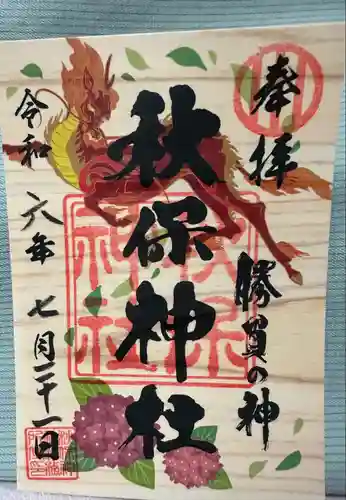 奉拝
勝負の神
秋保神社
令和六年七月二十一日
秋保神社